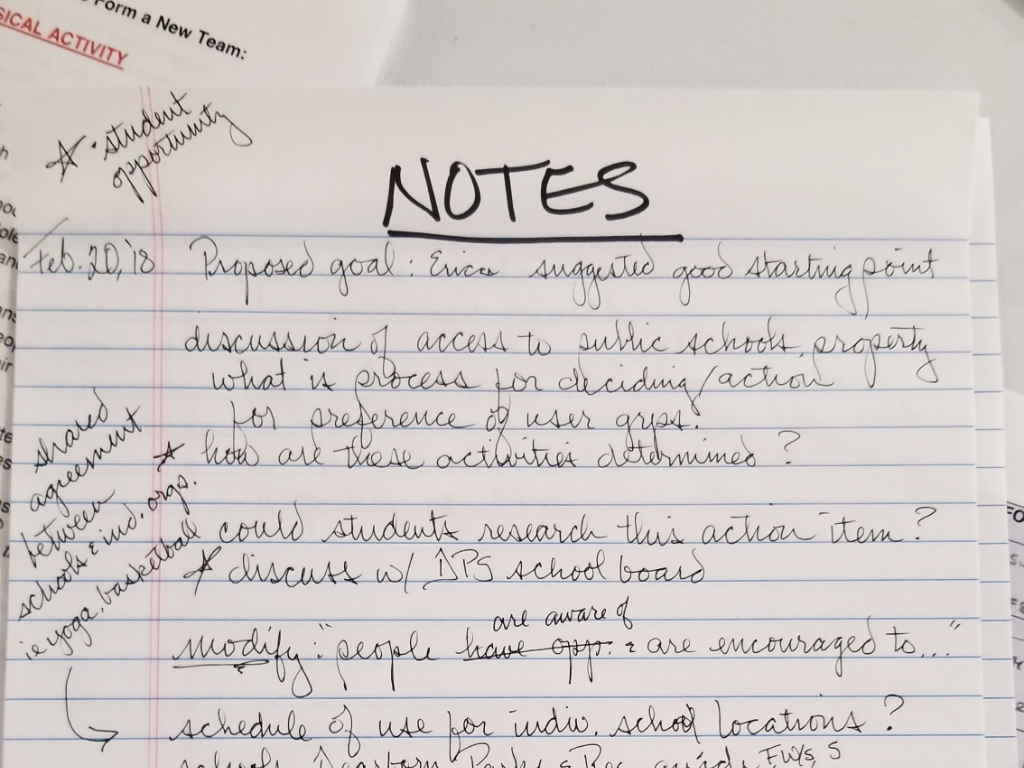 Form a New Team:
SICAL ACTIVITY
☆ · student
opportunity
NOTES
Feb. 20, '18 Proposed goal: Erica suggested good starting point
discussion of access to public schools, property
what is process for deciding/action
for preference of user grps.
☆ how are these activities determined?
shared
agreement
between
schools & ind. orgs.
ie yoga, basketball
could students research this action item?
☆ discuss w/ DPS school board
are aware of
modify: "people have opp. & are encouraged to..."
schedule of use for indiv. school locations?
schools, Dearborn Parks & Rec guide,